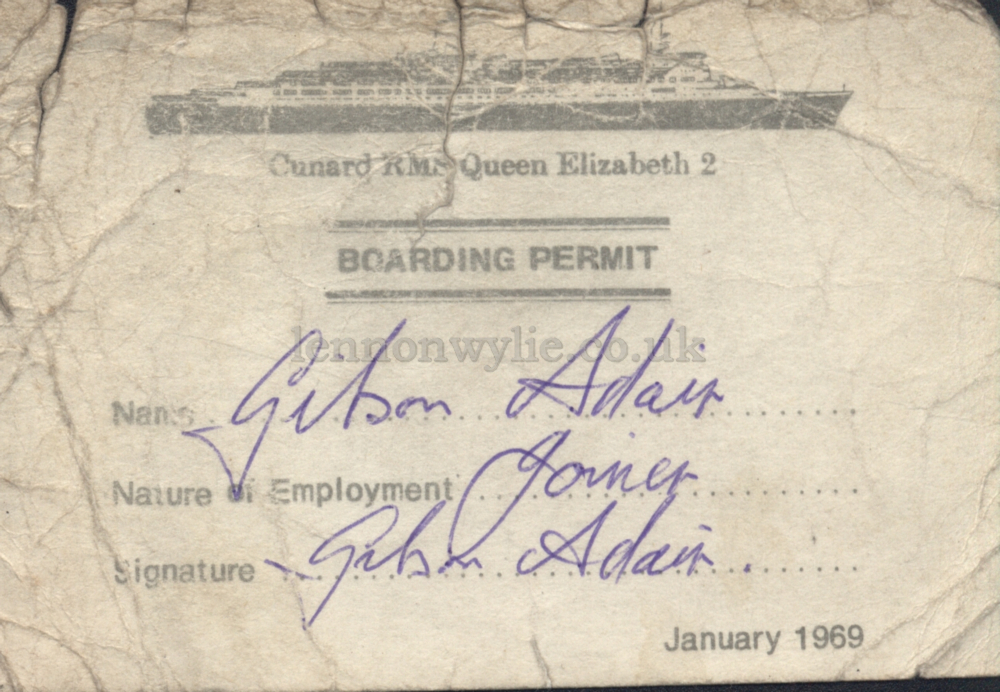 Cunard RMS Queen Elizabeth 2
BOARDING PERMIT
lennonwylie.co.uk
Name Gibson Adair
Nature of Employment Joiner
Signature Gibson Adair.
January 1969